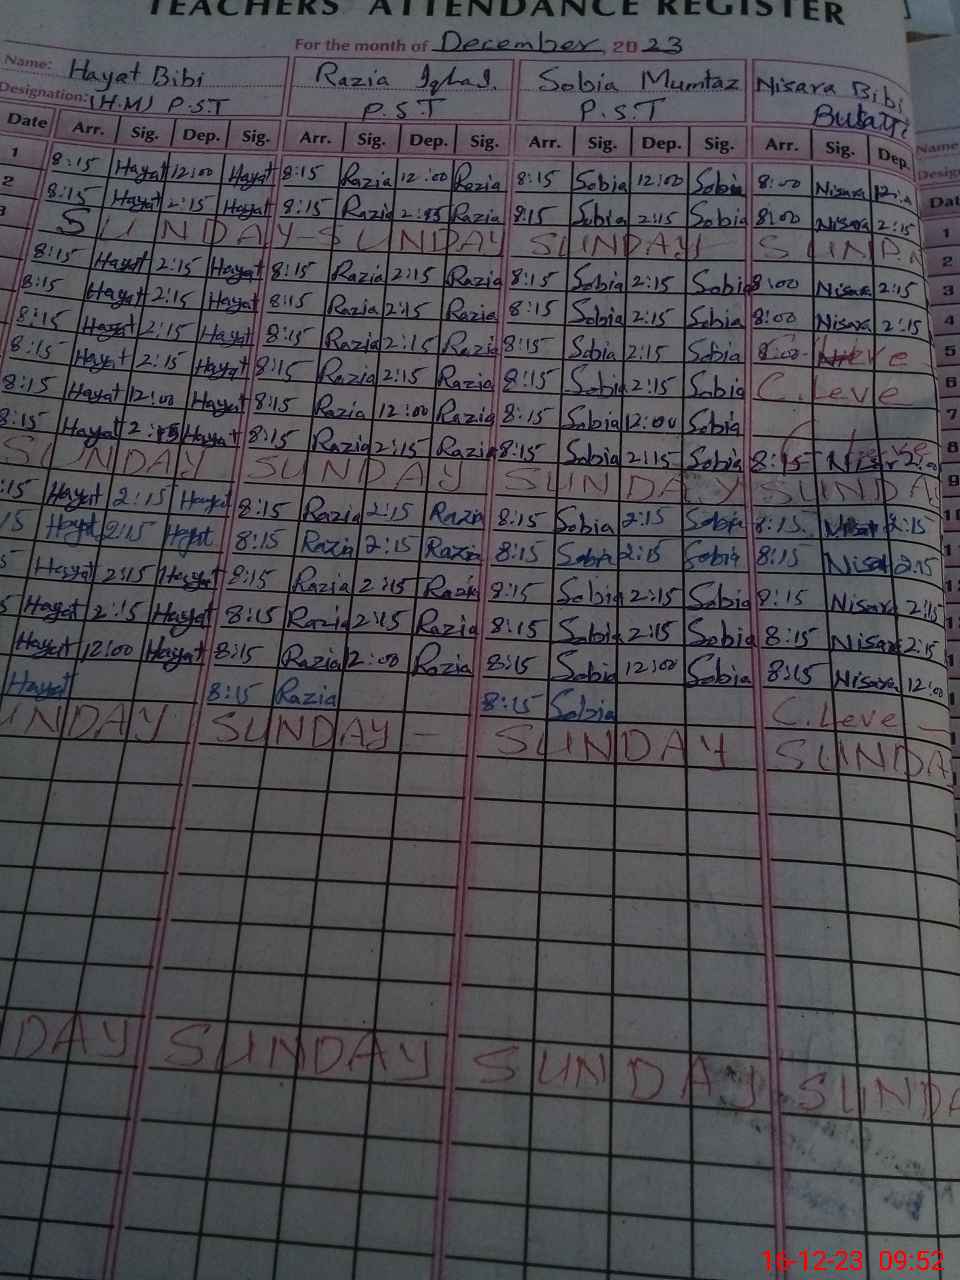 TEACHERS' ATTENDANCE REGISTER
For the month of December, 2023
Name: Hayat Bibi Razia Iqbal. Sobia Mumtaz Nisara Bibi
Designation: (H.M) P.S.T P.S.T P.S.T
Date Arr. Sig. Dep. Sig. Arr. Sig. Dep. Sig. Arr. Sig. Dep. Sig. Arr. Sig. Dep.
1 8:15 Hayat 12:00 Hayat 8:15 Razia 12:00 Razia 8:15 Sobia 12:00 Sobia 8:00 Nisara
2 8:15 Hayat 2:15 Hayat 8:15 Razia 2:15 Razia 8:15 Sobia 2:15 Sobia 8:00 Nisara 2:15
3 SUNDAY - SUNDAY SUNDAY SUND
8:15 Hayat 2:15 Hayat 8:15 Razia 2:15 Razia 8:15 Sobia 2:15 Sobia 8:00 Nisara 2:15
8:15 Hayat 2:15 Hayat 8:15 Razia 2:15 Razia 8:15 Sobia 2:15 Sobia 8:00 Nisara 2:15
8:15 Hayat 2:15 Hayat 8:15 Razia 2:15 Razia 8:15 Sobia 2:15 Sobia C. Leve
8:15 Hayat 2:15 Hayat 8:15 Razia 2:15 Razia 8:15 Sobia 2:15 Sobia C. Leve
8:15 Hayat 12:00 Hayat 8:15 Razia 12:00 Razia 8:15 Sobia 12:00 Sobia
8:15 Hayat 2:15 Hayat 8:15 Razia 2:15 Razia 8:15 Sobia 2:15 Sobia 8:15
SUNDAY SUNDAY SUNDAY SUNDA
:15 Hayat 2:15 Hayat 8:15 Razia 2:15 Razia 8:15 Sobia 2:15 Sobia 8:15 Nisar 2:15
15 Hayat 2:15 Hayat 8:15 Razia 2:15 Razia 8:15 Sobia 2:15 Sobia 8:15 Nisar 2:15
5 Hayat 2:15 Hayat 8:15 Razia 2:15 Razia 8:15 Sobia 2:15 Sobia 8:15 Nisara 2:15
5 Hayat 2:15 Hayat 8:15 Razia 2:15 Razia 8:15 Sobia 2:15 Sobia 8:15 Nisara 2:15
Hayat 12:00 Hayat 8:15 Razia 12:00 Razia 8:15 Sobia 12:00 Sobia 8:15 Nisara 12:00
Hayat 8:15 Razia 8:15 Sobia C. Leve -
UNDAY SUNDAY - SUNDAY SUNDA
DAY SUNDAY SUNDAY SUNDA
Name
Desig
Dat
1
2
3
4
5
6
7
8
9
16-12-23 09:52